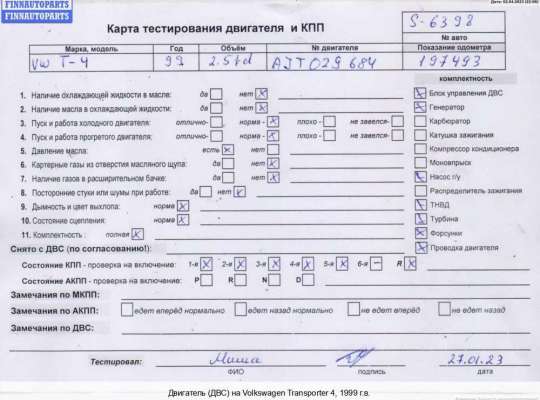 FINNAUTOPARTS
FINNAUTOPARTS
Карта тестирования двигателя и КПП
S-6398
№ авто
Марка, модель Год Объём № двигателя Показание одометра
VW T-4 99 2.5td AJT029684 197493
комплектность
1. Наличие охлаждающей жидкости в масле: да нет x
Блок управления ДВС
2. Наличие масла в охлаждающей жидкости: да нет x
Генератор
3. Пуск и работа холодного двигателя: отлично- норма - x плохо - не завелся-
Карбюратор
4. Пуск и работа прогретого двигателя: отлично- норма - x плохо - не завелся-
Катушка зажигания
5. Давление масла: есть x нет
Компрессор кондиционера
6. Картерные газы из отверстия масляного щупа: да нет
Моновпрыск
7. Наличие газов в расширительном бачке: да нет x
Насос г/у
8. Посторонние стуки или шумы при работе: да нет x
Распределитель зажигания
9. Дымность и цвет выхлопа: норма x
ТНВД
10. Состояние сцепления: норма x
Турбина
11. Комплектность : полная x
Форсунки
Снято с ДВС (по согласованию!):
Проводка двигателя
Состояние КПП - проверка на включение: 1-я x 2-я x 3-я x 4-я x 5-я x 6-я – R x
Состояние АКПП - проверка на включение: P R N D
Замечания по МКПП:
Замечания по АКПП: едет вперёд нормально едет назад нормально не едет вперёд не едет назад
Замечания по ДВС:
Тестировал: Миша 27.01.23
ФИО подпись дата
Двигатель (ДВС) на Volkswagen Transporter 4, 1999 г.в.